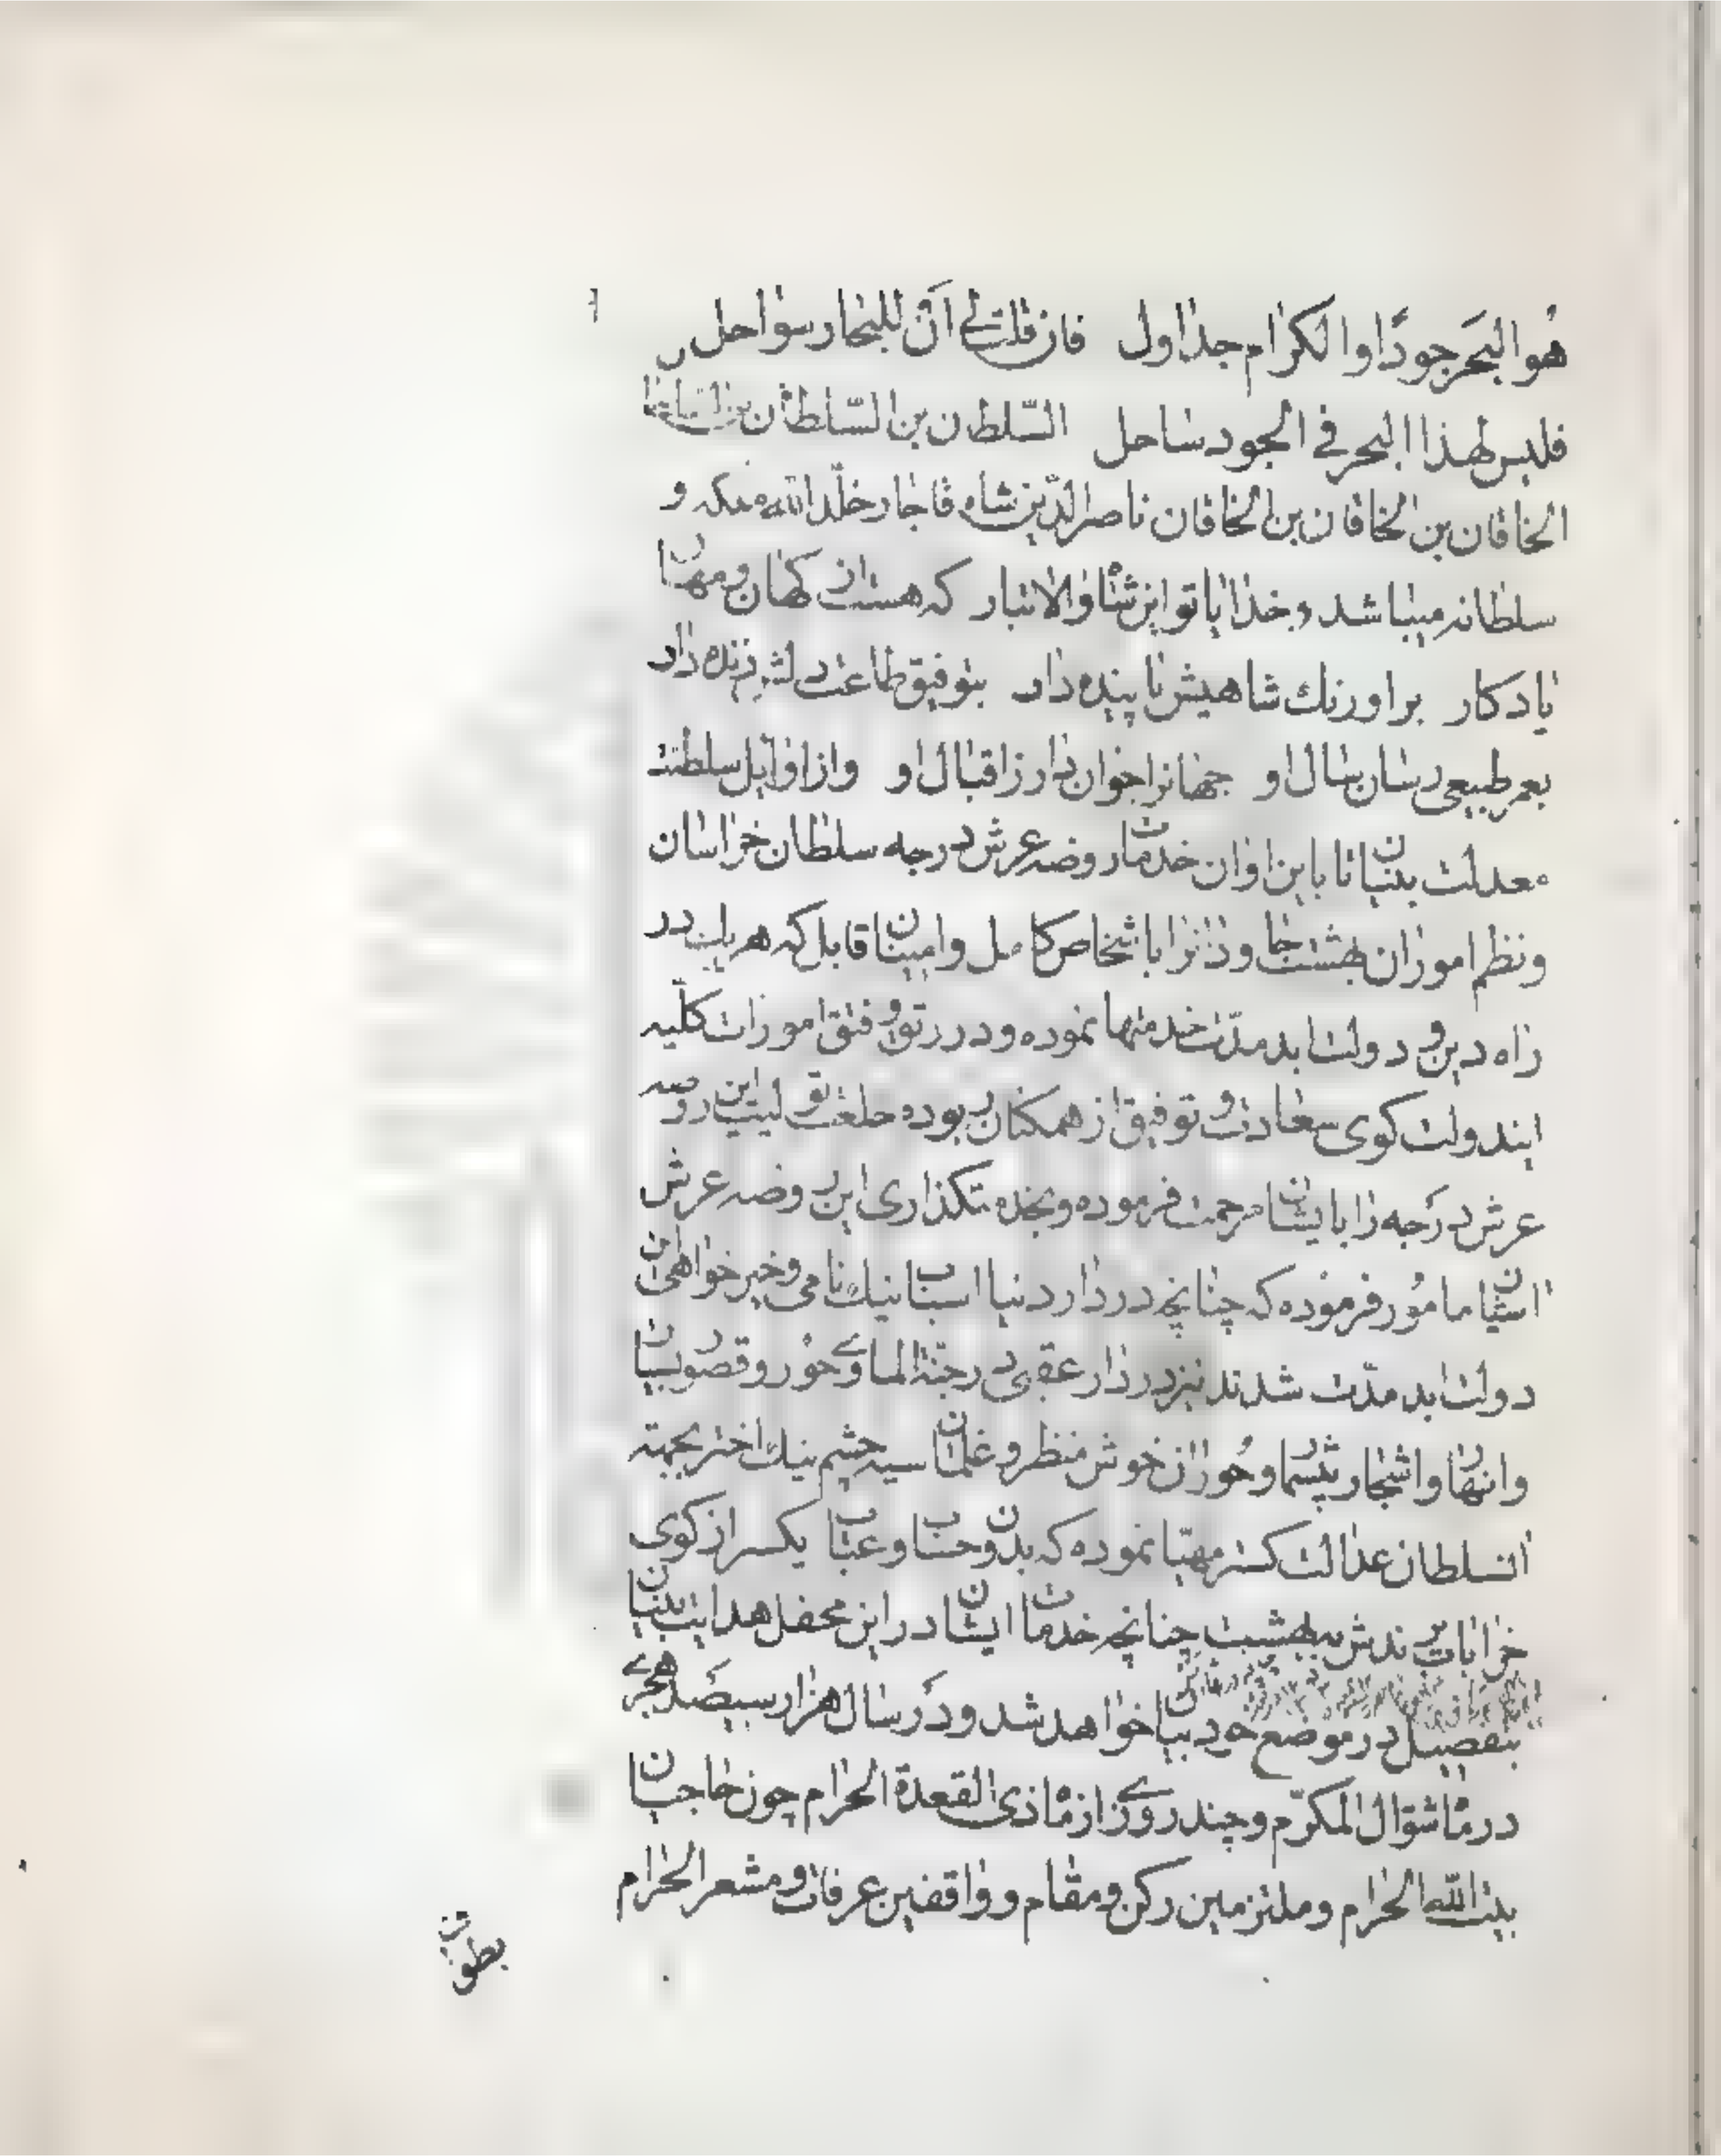 هو البحر جودًا والكرام جداول فان قلت لي انّ للبحار سواحل
فليس لهذا البحر في الجود ساحل السّلطان بن السّلطان بن السلطان
الخاقان بن الخاقان بن الخاقان ناصرالدّین شاه قاجار خلّد الله ملکه و
سلطانه میباشد خدایا تو این شاه والاتبار که هست از کهان و مهان
یادکار بر اورنك شاهیش پاینده دار بتوفیق طاعت دلش زنده دار
بعمر طبیعی رسان سال او جهانرا جوان دار ز اقبال او و از اوایل سلطنت
معدلت بنیان تا باین اوان خدمات روضه عرش درجه سلطان خراسان
و نظم امور ان بهشت جاودانرا باشخاص کامل و امینان قابل که هریك در
راه دین و دولت ابدمدّت خدمتها نموده و در رتق و فتق امورات کلّیه
ایندولت کوی سعادت و توفیق از همکنان ربوده خلعت تولیت این روضه
عرش درجه را بایشان مرحمت فرموده و بخدمتکذاری این روضه عرش
استان مامور فرموده که چنانچه در دار دنیا اسباب نیك نامی و خیرخواهی این
دولت ابدمدّت شدند نیز در دار عقبی در جنّة الماوی حور و قصور بیپایان
و انهار و اشجار بیشمار و حوران خوش منظر و غلمان سیه چشم نیك اختر بجهته
انسلطان عدالت کستر مهیّا نموده که بدون حساب و عتاب یکسر از کوی
خرابات برندش ببهشت چنانچه خدمات ایشان در این محفل هدایت بنیان
بتفصیل در موضع خود بیان خواهد شد و در سال هزار سیصد هجری
در ماه شوّال المکرّم و چند روزی از ماه ذی القعدة الحرام چون حاجیان
بیت الله الحرام و ملتزمین رکن و مقام و واقفین عرفات و مشعر الحرام
بطوف